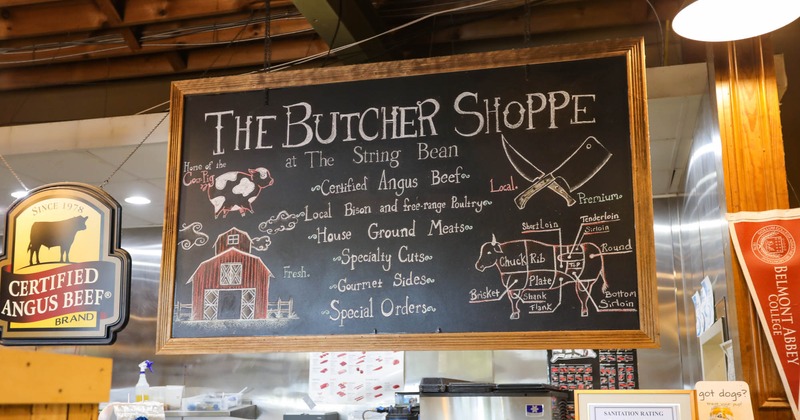 THE BUTCHER SHOPPE
at The String Bean
Home of the
Cow-Pig
~Certified Angus Beef~
Local Bison and free-range Poultry~
~House Ground Meats~
~Specialty Cuts~
~Gourmet Sides~
~Special Orders~
Fresh.
Local.
Premium~
Shortloin
Tenderloin
Sirloin
Chuck
Rib
Round
Plate
Brisket
Shank
Flank
Bottom
Sirloin
SINCE 1978
CERTIFIED
ANGUS BEEF®
BRAND
BELMONT ABBEY
COLLEGE
got dogs?
SANITATION RATING